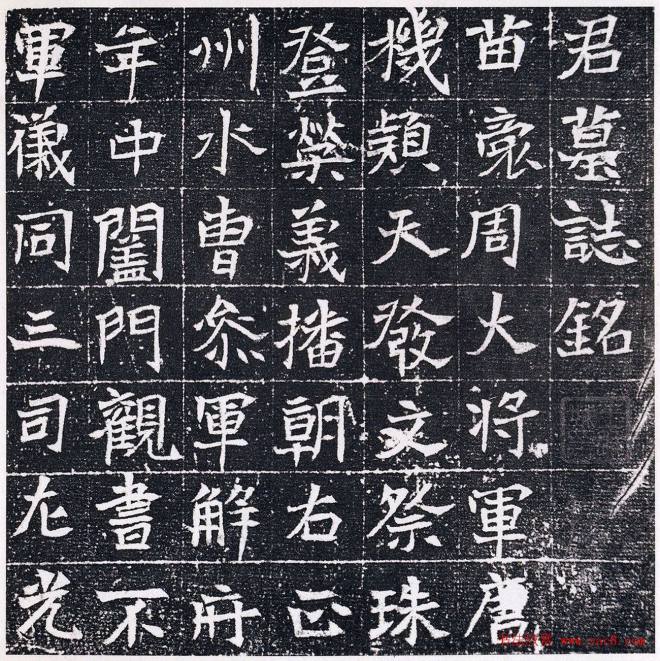 君墓誌銘
苗裔周大将軍唐
機穎天發文祭珠
登榮義播朝右正
州水曹叅軍解府
年中闔門觀書不
軍儀同三司左光
www.yac8.com